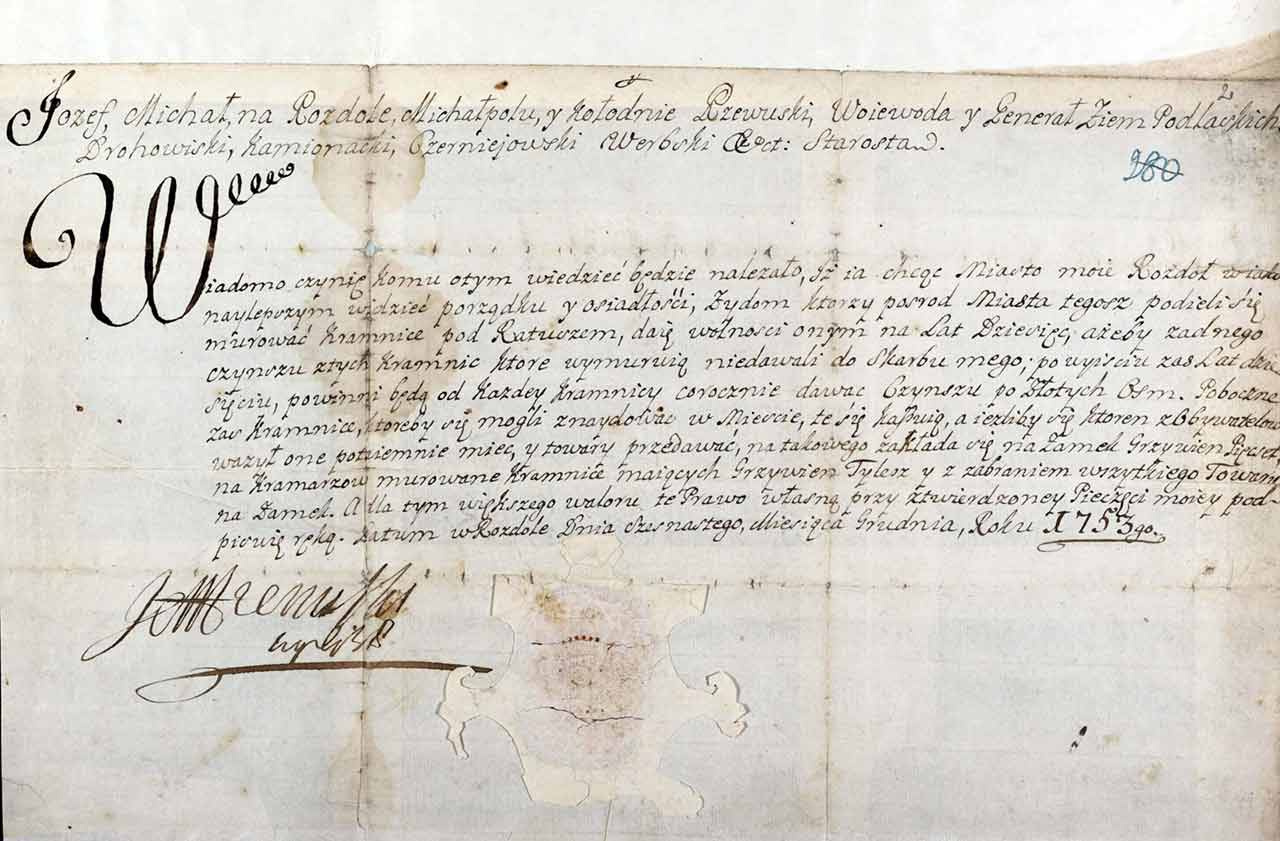 Jozef, Michał, na Rozdole, Michałpolu, y Kołodnie Rzewuski, Woiewoda y Generał Ziem Podlaskich
Drohowiski, Kamionacki, Czerniejowski Werbski &ct: Starosta.
280
Wiadomo czynię komu otym wiedzieć będzie nalezało, Iż ia chcąc Miasto moie Rozdoł wiako
naylepszym widzieć porządku y osiadłości, Zydom ktorzy posrod Miasta tegosz podieli się
murować Kramnice pod Ratuszem, daię wolnosci onym na Lat Dziesięc, ażeby zadnego
czynszu ztych Kramnic ktore wymuruią niedawali do Skarbu mego; po wyisciu zas Lat dzie
sięciu, powinni będą od Kazdey Kramnicy corocznie dawac Czynszu po Złotych Osm. Poboczne
zas Kramnice, ktoreby się mogli znaydować w Miescie, te się Kassuią, a iezliby się ktoren z Obywatelow
wazył one potaiemnie miec, y towary przedawać, na takowego zakłada się na Zamek Grzywien Pięcset,
na Kramarzow murowane Kramnice maiących Grzywien Tylesz y z zabraniem wszytkiego Towaru
na Zamek. A dla tym większego waloru te Prawo własną przy ztwierdzoney Pieczęci moiey pod-
pisuię ręką. Datum w Rozdole Dnia szesnastego, Miesiąca Grudnia, Roku 1753go.
JMRzewuski